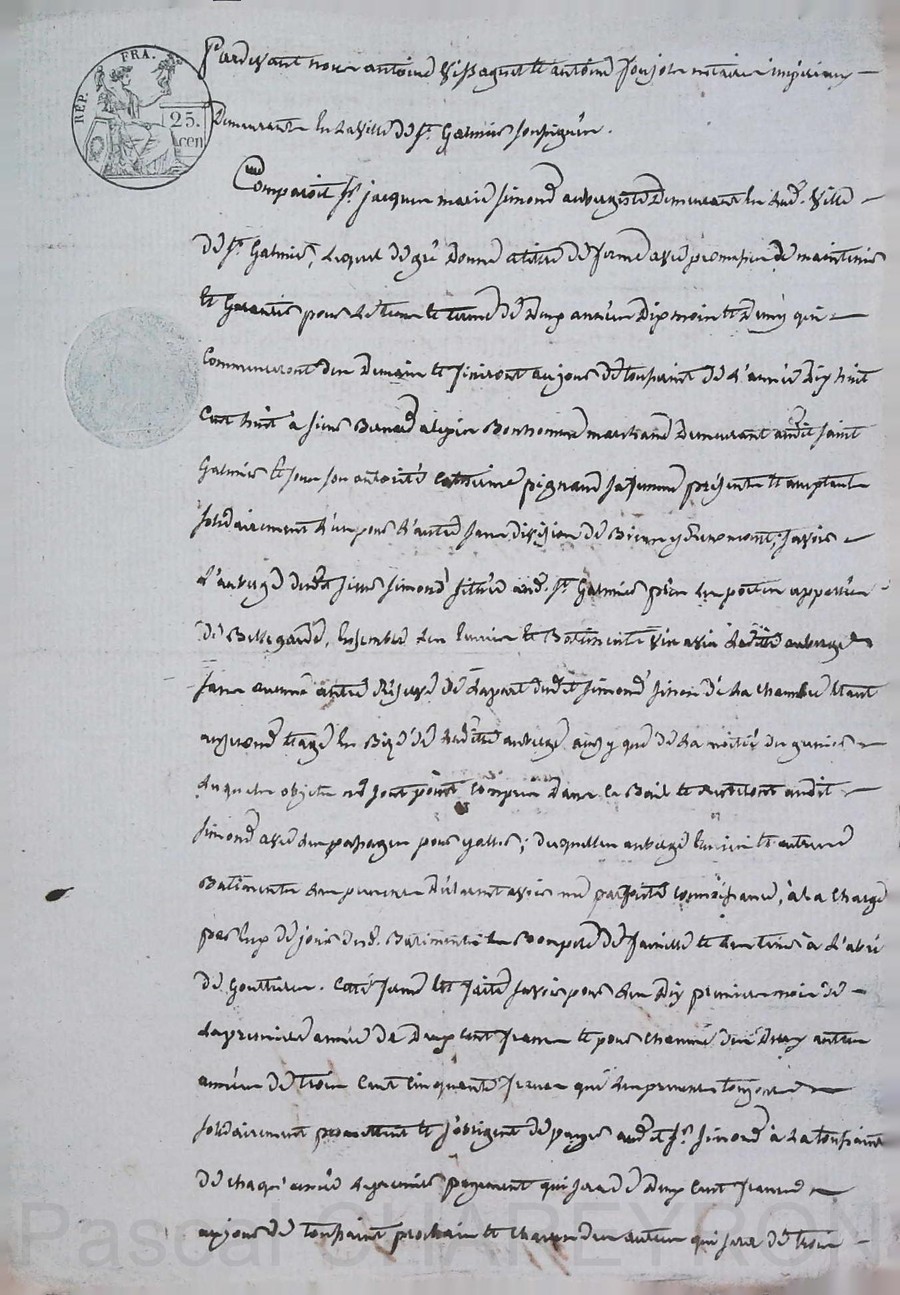 RÉP. FRA.
25.
cen
Pardevant nous antoine Vissaguet et antoine Jonjon notaires impériaux
Demeurants en la ville de St. Galmier soussignés.
Comparoit Sr. jacques marie simond aubergiste Demeurant en lad. Ville
de St. Galmier, Lequel de gré Donne a titre de ferme avec promesse de maintenir
et Garantir pour le tems et terme de Deux années Dix mois et Demy qui
Commenceront des Demain et finiront au jour de toussaint de L'année Dix huit
Cent huit à sieur Bernard Bonhomme marchand Demeurant audit saint
Galmier et sous son autorité Catherine pignard sa femme présente et acceptante
solidairement L'un pour L'autre sans division de Biens y Renonçant, savoir
L'auberge dudit sieur simond située aud. St. Galmier près les portes appellées
de Bellegarde, Ensemble Les Ecuries et Batiments vis avis Ladite auberge
sans aucune autre Réserve de La part dudit simond sinon de La chambre étant
au second étage en Bize de Ladite auberge ainsy que de La moitié du grenier
Lesquels objets ne sont point Compris Dans Le Bail et Resteront audit
simond avec Les passages pour y aller; desquelles auberge Ecuries et autres
Batiments Les preneurs Déclarent avoir une parfaite connoissance, à La Charge
par Eux de jouir desd. Batiments en Bon père de famille et Les tenir à L'abri
de Gouttières. Cette ferme est faite savoir pour Les Dix premiers mois de
La première année de Deux Cent francs et pour Chacune des Deux autres
années de trois Cent Cinquante francs que Les preneurs toujours
solidairement promettent et s'obligent de payer audit Sr. simond à La toussaint
de chaque année Le premier payement qui sera de Deux Cent francs
au jour de toussaint prochain et Chacun des autres qui sera de trois
Pascal CHAREYRON